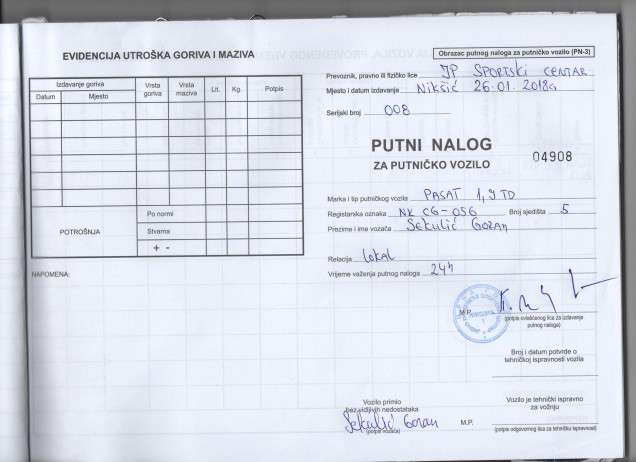 EVIDENCIJA UTROŠKA GORIVA I MAZIVA
Izdavanje goriva
Datum Mjesto Vrsta goriva Vrsta maziva Lit. Kg. Potpis
POTROŠNJA
Po normi
Stvarna
+ -
NAPOMENA:
Obrazac putnog naloga za putničko vozilo (PN-3)
Prevoznik, pravno ili fizičko lice JP SPORTSKI CENTAR
Mjesto i datum izdavanja Nikšić 26.01.2018g
Serijski broj 008
PUTNI NALOG
ZA PUTNIČKO VOZILO
04908
Marka i tip putničkog vozila PASAT 1,9 TD
Registarska oznaka NK CG-056 Broj sjedišta 5
Prezime i ime vozača Sekulić Goran
Relacija Lokal
Vrijeme važenja putnog naloga 24h
M.P.
(potpis ovlašćenog lica za izdavanje
putnog naloga)
Broj i datum potvrde o
tehničkoj ispravnosti vozila
Vozilo primio
bez vidljivih nedostataka
Sekulić Goran
(potpis vozača)
M.P.
Vozilo je tehnički ispravno
za vožnju
(potpis odgovornog lica za tehničku ispravnost)